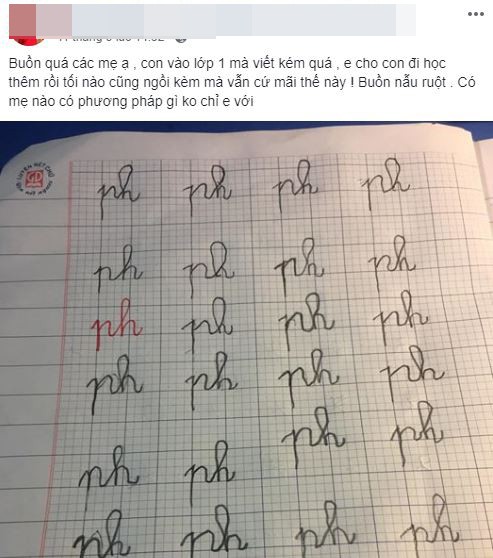 Buồn quá các mẹ ạ , con vào lớp 1 mà viết kém quá , e cho con đi học
thêm rồi tối nào cũng ngồi kèm mà vẫn cứ mãi thế này ! Buồn nẫu ruột . Có
mẹ nào có phương pháp gì ko chỉ e với
ph ph ph ph
ph ph ph ph
ph ph ph ph
ph ph ph ph
ph ph
ph ph
ph ph ph ph